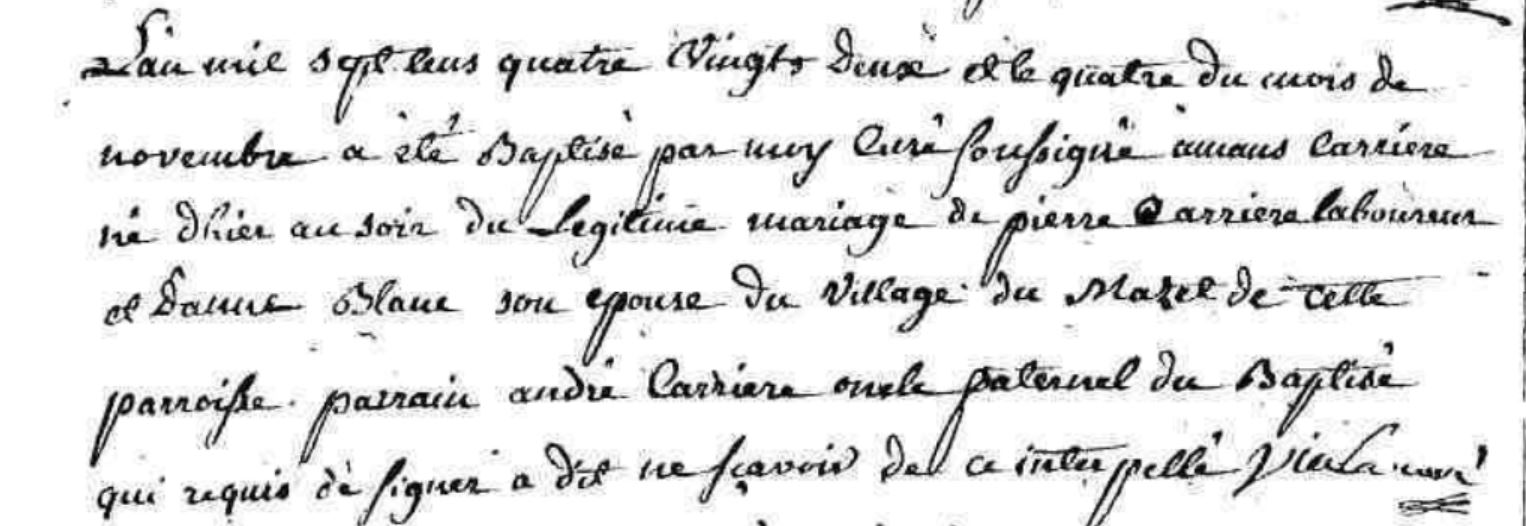 L'an mil sept cens quatre vingts deux et le quatre du mois de
novembre a été Baptisé par moy Curé soussigné amans Carriere
né d'hier au soir du Legitime mariage de pierre Carriere laboureur
et d'anne Blanc son epouse du village du Mazel de cette
parroisse. parrain andré Carriere oncle paternel du Baptisé
qui requis de signer a dit ne sçavoir de ce interpellé